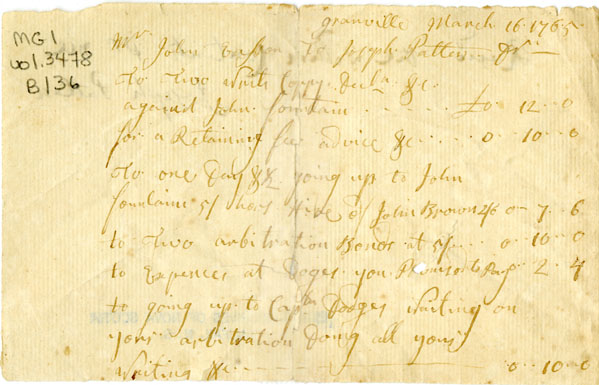 MG1
vol. 3478
B/36
Granville March 16 1765
Mr John To Joseph Patten Dr
To Two writs Copy Decla &c
against John fountain £0 12 0
for a Retaining fee advice &c 0 10 0
To one Day &c going up to John
fountains 5/ hors Hire of John Brown 2/6 0 7 6
to Two arbitration Bonds at 5/ 0 10 0
to Expences at Doges you Promised to Pay 2 4
to going up to Captn Dodges waiting on
yours arbitration Doing all yours
writing &c 0 10 0